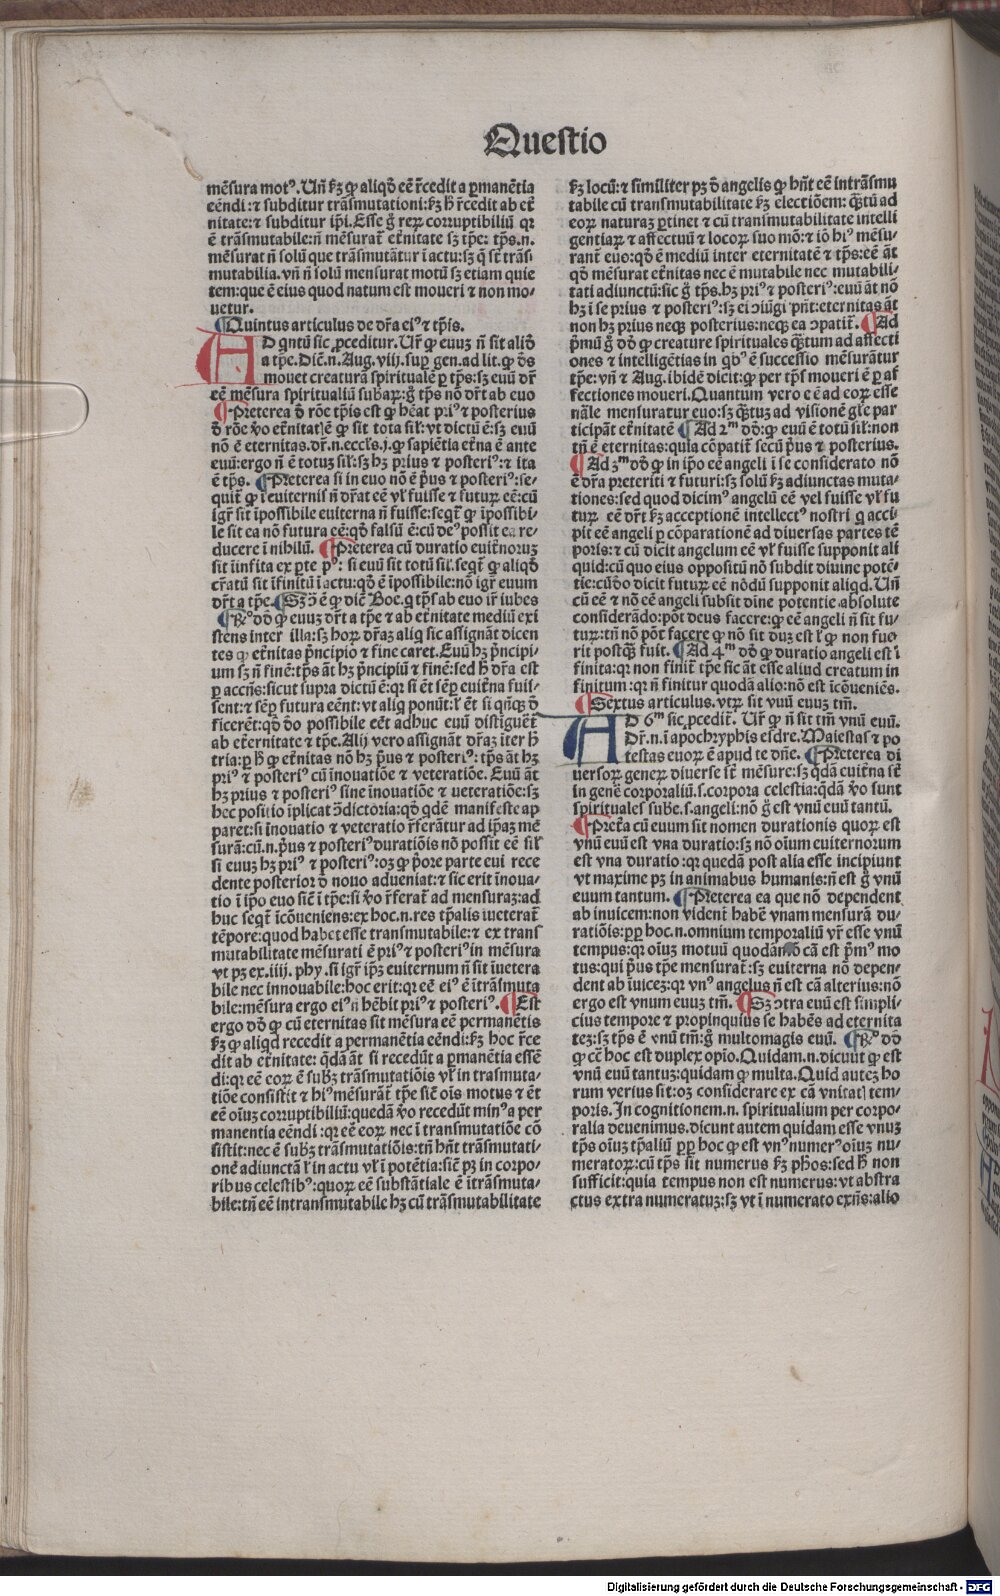 Questio
mẽsura motꝰ. Uñ ẜꝫ ꝙ aliqđ eẽ r̃cedit a ꝑmanẽtia
eẽndi: ⁊ subditur trãsmutationi: ẜꝫ ħ r̃cedit ab et̃
nitate: ⁊ subditur tp̃i. Esse ḡ reꝝ corruptibiliũ qꝛ
ẽ trãsmutabile: ñ mẽsurat̃ et̃nitate sꝫ tp̃e: tp̃s .n.
mẽsurat ñ solũ que trãsmutãtur ĩ actu: sꝫ q̃ st̃ trãs/
mutabilia. vñ ñ solũ mensurat motũ sꝫ etiam quie
tem: que ẽ eius quod natum est moueri ⁊ non mo/
uetur.
¶Quintus articulus de dr̃a eiꝰ ⁊ tp̃is.
AD qntũ sic ꝓceditur. Ur̃ ꝙ euuꝫ ñ sit aliđ
a tp̃e. Diẽ. n. Aug. viij. suꝑ gen. ad lit. ꝙ đs
mouet creaturã spiritualẽ ꝑ tp̃s: sꝫ euũ dr̃
eẽ mẽsura spiritualiũ subaꝝ: ḡ tp̃s nõ dr̃t ab euo
¶Preterea đ rõe tp̃is est ꝙ hẽat priꝰ ⁊ posterius
đ rõe ꝟo et̃nitat̃ ẽ ꝙ sit tota sil̃: vt dictũ ẽ: sꝫ euũ
nõ ẽ eternitas. dr̃ .n. eccl̃s. j. ꝙ sapiẽtia et̃na ẽ ante
euũ: ergo ñ ẽ totuꝫ sil̃: sꝫ hꝫ prius ⁊ posteriꝰ: ⁊ ita
ẽ tp̃s. ¶Preterea si in euo nõ ẽ p̃us ⁊ posteriꝰ: se/
quit̃ ꝙ ĩ euiternis ñ dr̃at eẽ vl̃ fuisse ⁊ futuꝝ eẽ: cũ
igr̃ sit ĩpossibile euiterna ñ fuisse: seqt̃ ꝙ ĩpossibi/
le sit ea nõ futura eẽ: qđ falsũ ẽ: cũ deꝰ possit ea re/
ducere ĩ nihilũ. ¶Preterea cũ duratio euit̃noruꝫ
sit ĩinfita ex ꝑte pꝰ: si euũ sit totũ sil̃. seqt̃ ꝙ aliqđ
cr̃atũ sit ĩfinitũ ĩ actu: qđ ẽ ĩpossibile: nõ igr̃ euum
dr̃t a tp̃e. ¶Sꝫ ꝯ̃ ẽ ꝙ diẽ Boe. q tp̃s ab euo ir̃ iubes
¶Rꝰ đđ ꝙ euuꝫ dr̃t a tp̃e ⁊ ab et̃nitate mediũ exi
stens inter illa: sꝫ hoꝝ dr̃aꝫ aliq sic assignãt dicen
tes ꝙ et̃nitas p̃ncipio ⁊ fine caret. Euũ hꝫ p̃ncipi/
um sꝫ ñ finẽ: tp̃s ãt hꝫ p̃ncipiũ ⁊ finẽ: sed ħ dr̃a est
ꝑ accñs: sicut supra dictũ ẽ: qꝛ si ẽt sẽꝑ euit̃na fuis/
sent: ⁊ sẽꝑ futura eẽnt: vt aliq ponũt: l̃ ẽt si qñqꝫ đ
ficerẽt: qđ đo possibile eẽt adhuc euũ distĩgueret̃
ab et̃ernitate ⁊ tp̃e. Alij vero assignãt dr̃aꝫ iter ħ
tria: ꝑ ħ ꝙ et̃nitas nõ hꝫ p̃us ⁊ posteriꝰ: tp̃s ãt hꝫ
priꝰ ⁊ posteriꝰ cũ inouatiõe ⁊ veteratiõe. Euũ ãt
hꝫ prius ⁊ posteriꝰ sine ĩnouatiõe ⁊ ueteratiõe: sꝫ
hec positio ĩplicat ꝯ̃dictoria: qđ qdẽ manifeste ap
paret: si ĩnouatio ⁊ veteratio r̃ferãtur ad ip̃aꝫ mẽ
surã: cũ .n. p̃us ⁊ posteriꝰ duratiõis nõ possit eẽ sil̃
si euuꝫ hꝫ priꝰ ⁊ posteriꝰ: oꝫ ꝙ p̃ore parte eui rece
dente posterioꝛ đ nouo adueniat: ⁊ sic erit ĩnoua/
tio ĩ ip̃o euo siẽ ĩ tp̃e: si ꝟo r̃ferat̃ ad mensuraꝫ: ad
huc seqt̃ ĩcõueniens: ex hoc .n. res tp̃alis iueterat̃
tẽpore: quod habet esse transmutabile: ⁊ ex trans
mutabilitate mẽsurati ẽ priꝰ ⁊ posteriꝰ in mẽsura
vt pꝫ ex .iiij. phy. si igr̃ ip̃ꝫ euiternum ñ sit ĩuetera
bile nec innouabile: hoc erit: qꝛ eẽ eiꝰ ẽ ĩtrãsmuta
bile: mẽsura ergo eiꝰ ñ hẽbit priꝰ ⁊ posteriꝰ. ¶Est
ergo đđ ꝙ cũ eternitas sit mẽsura eẽ permanẽtis
ẜꝫ ꝙ aliqd recedit a permanẽtia eẽndi: ẜꝫ hoc r̃ce
dit ab et̃nitate: q̃dã ãt si recedũt a ꝑmanẽtia essẽ
di: qꝛ eẽ eoꝝ ẽ subꝫ trãsmutatiõis vl̃ in trasmuta/
tiõe consistit ⁊ hiꝰ mẽsurat̃ tp̃e siẽ oĩs motus ⁊ ẽt
eẽ oĩuꝫ corruptibiliũ: quedã ꝟo recedũt minꝰ a per
manentia eẽndi: qꝛ eẽ eoꝝ nec ĩ transmutatiõe cõ
sistit: nec ẽ subꝫ trãsmutatiõis: tñ hñt trãsmutati/
onẽ adiunctã l̃ in actu vl̃ ĩ potẽtia: siẽ pꝫ in corpo/
ribus celestibꝰ: quoꝝ eẽ substãtiale ẽ ĩtrãsmuta/
bile: tñ eẽ intransmutabile hꝫ cũ trãsmutabilitate
ẜꝫ locũ: ⁊ similiter pꝫ đ angelis ꝙ hñt eẽ intrãsmu
tabile cũ transmutabilitate ẜꝫ electiõem: q̃ꝫtũ ad
eoꝝ naturaꝫ ꝑtinet ⁊ cũ transmutabilitate intelli
gentiaꝝ ⁊ affectuũ ⁊ locoꝝ suo mõ: ⁊ iõ hiꝰ mẽsu/
rant̃ euo: qđ ẽ mediũ inter eternitatẽ ⁊ tp̃s: eẽ ãt
qđ mẽsurat et̃nitas nec ẽ mutabile nec mutabili/
tati adiunctũ: sic ḡ tp̃s. hꝫ priꝰ ⁊ posteriꝰ: euũ ãt nõ
hꝫ ĩ se prius ⁊ posteriꝰ: sꝫ ei ꝯiũgi p̃nt: eternitas ãt
non hꝫ prius neqꝫ posterius: neqꝫ ea ꝯpatit̃. ¶Ad
p̃mũ ḡ đđ ꝙ creature spirituales q̃ꝫtum ad affecti
ones ⁊ intelligẽtias in qbꝰ ẽ successio mẽsurãtur
tp̃e: vñ ⁊ Aug. ibidẽ dicit: ꝙ per tp̃s moueri ẽ ꝑ af
fectiones moueri. Quantum vero eẽ ad eoꝝ esse
nãle mensuratur euo: sꝫ q̃ꝫtuꝫ ad visionẽ gl̃e par
ticipãt et̃nitatẽ ¶Ad 2ᵐ đđ: ꝙ euũ ẽ totũ sil̃: non
tñ ẽ eternitas: quia cõpatit̃ secũ p̃us ⁊ posterius.
¶Ad 3ᵐ đđ ꝙ in ip̃o eẽ angeli ĩ se considerato nõ
ẽ dr̃a preteriti ⁊ futuri: sꝫ solũ ẜꝫ adiunctas muta/
tiones: sed quod dicimꝰ angelũ eẽ vel fuisse vl̃ fu
tuꝝ eẽ dr̃t ẜꝫ acceptionẽ intellectꝰ nostri q acci/
pit eẽ angeli ꝑ cõparationẽ ad diuersas partes tẽ
poris: ⁊ cũ dicit angelum eẽ vl̃ fuisse supponit ali
quid: cũ quo eius oppositũ nõ subdit diuine potẽ/
tie: cũ đo dicit futuꝝ eẽ nõdũ supponit aliqd. Uñ
cũ eẽ ⁊ nõ eẽ angeli subsit diĩne potentie absolute
considerãdo: põt deus facere: ꝙ eẽ angeli ñ sit fu/
tuꝝ: tñ nõ põt facere ꝙ nõ sit duꝫ est l̃ ꝙ non fue
rit postq̃ꝫ fuit. ¶Ad 4ᵐ đđ ꝙ duratio angeli est ĩ
finita: qꝛ non finit̃ tp̃e sic ãt esse aliud creatum in
finitum: qꝛ ñ finitur quodã alio: nõ est ĩcõueniẽs.
¶Sextus articulus. vtꝝ sit vnũ euuꝫ tm̃.
AD 6ᵐ sic ꝓcedit̃. Ur̃ ꝙ ñ sit tm̃ vnũ euũ.
Dr̃ .n. ĩ apochryphis esdre. Maiestas ⁊ po
testas euoꝝ ẽ apud te dñe. ¶Preterea di
uersoꝝ geneꝝ diuerse st̃ mẽsure: sꝫ q̃dã euit̃na st̃
in genẽ corporaliũ. s. corpora celestia: q̃dã ꝟo sunt
spirituales sube. s. angeli: nõ ḡ est vnũ euũ tantũ.
¶Pret̃a cũ euum sit nomen durationis quoꝝ est
vnũ euũ est vna duratio: sꝫ nõ oĩum euiternorum
est vna duratio: qꝛ quedã post alia esse incipiunt
vt maxime pꝫ in animabus humanis: ñ est ḡ vnũ
euum tantum. ¶Preterea ea que nõ dependent
ab inuicem: non vident̃ habẽ vnam mensurã du/
ratiõis: ꝓꝑ hoc .n. omnium temporaliũ vr̃ esse vnũ
tempus: qꝛ oĩuꝫ motuũ quodãmõ cã est p̃mꝰ mo
tus: qui p̃us tp̃e mensurat̃: sꝫ euiterna nõ depen/
dent ab ĩuiceꝫ: qꝛ vnꝰ angelus ñ est cã alterius: nõ
ergo est vnum euuꝫ tm̃. ¶Sꝫ ꝯtra euũ est simpli/
cius tempore ⁊ propinquius se habẽs ad eternita
teꝫ: sꝫ tp̃s ẽ vnũ tm̃: ḡ multomagis euũ. ¶Rꝰ đđ
ꝙ cc̃ hoc est duplex opĩo. Quidam .n. dicunt ꝙ est
vnũ euũ tantuꝫ: quidam ꝙ multa. Quid auteꝫ ho
rum verius sit: oꝫ considerare ex cã vnitat̃ tem/
poris. In cognitionem .n. spiritualium per corpo/
ralia deuenimus. dicunt autem quidam esse vnuꝫ
tp̃s oĩuꝫ tp̃aliũ ꝓꝑ hoc ꝙ est vnꝰ numerꝰ oĩuꝫ nu/
meratoꝝ: cũ tp̃s sit numerus ẜꝫ ph̃os: sed ħ non
sufficit: quia tempus non est numerus: vt abstra
ctus extra numeratuꝫ: sꝫ vt ĩ numerato exñs: alio
Digitalisierung gefördert durch die Deutsche Forschungsgemeinschaft - DFG